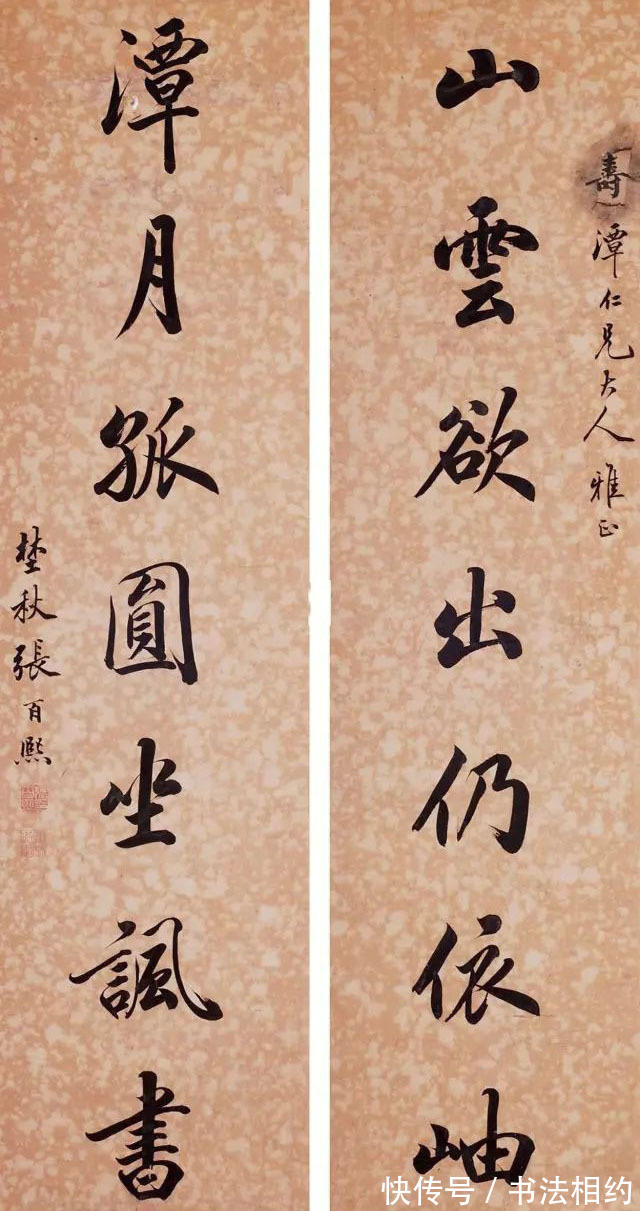 壽潭仁兄大人雅正
山雲欲出仍依岫
潭月孤圓坐諷書
埜秋張百熙
快传号/书法相约